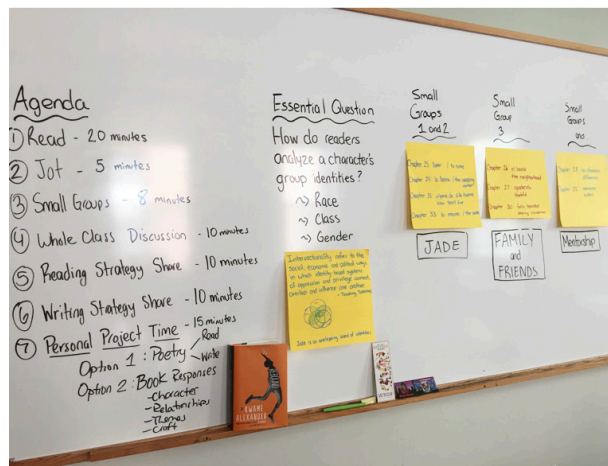 Agenda
① Read - 20 minutes
② Jot - 5 minutes
③ Small Groups - 8 minutes
④ Whole Class Discussion - 10 minutes
⑤ Reading Strategy Share - 10 minutes
⑥ Writing Strategy Share - 10 minutes
⑦ Personal Project Time - 15 minutes
Option 1: Poetry
Read
Write
Option 2: Book Responses
- Character
- Relationships
- Themes
- Craft
Essential Question
How do readers
analyze a character's
group identities?
~> Race
~> Class
~> Gender
Intersectionality refers to the
social, economic and political ways
in which identity-based systems
of oppression and privilege connect,
overlap and influence one another.
Jade is an overlapping point of identities
Small
Groups
1 and 2
Chapter 25
JADE
Small
Group
3
Chapter 26
the neighborhood
Chapter 27
Chapter 30
FAMILY
and
FRIENDS
Small
Groups
and
Chapter 28
Mentorship
KWAME
ALEXANDER